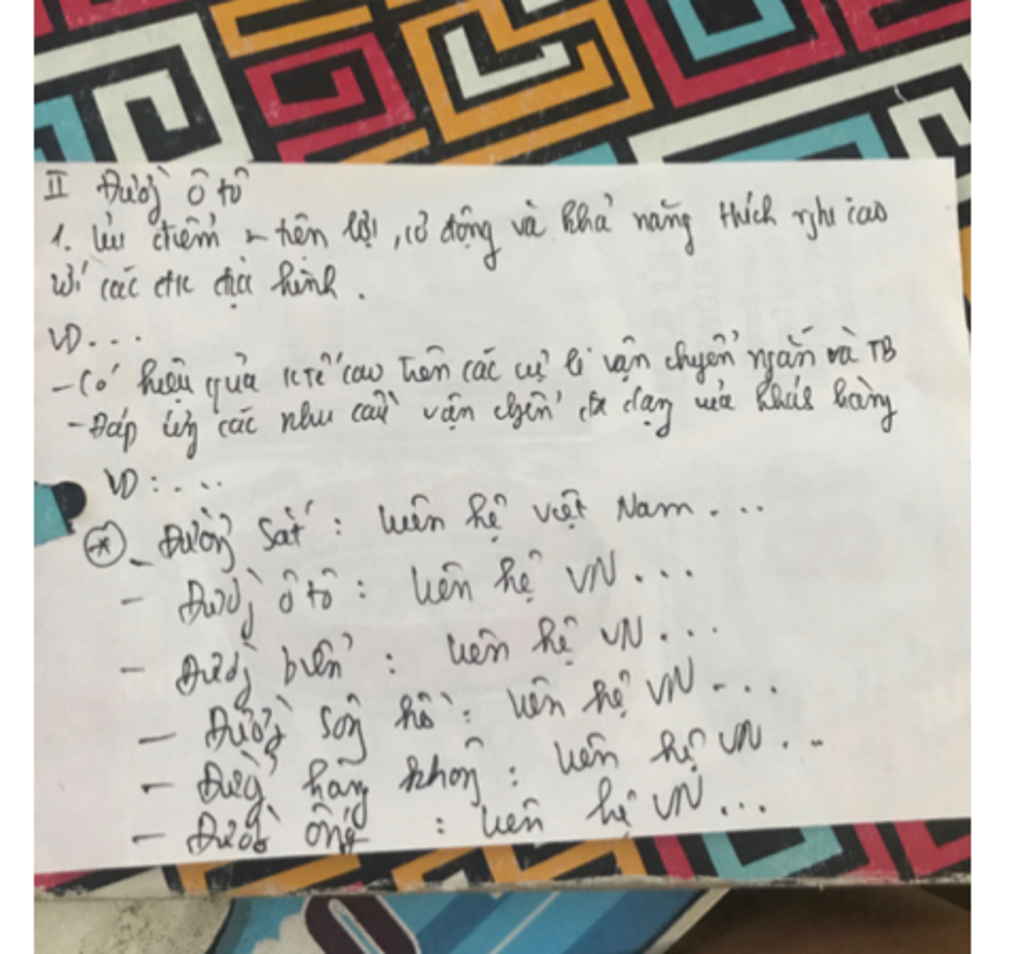 II Đường ô tô
1. Ưu điểm - tiện lợi, cơ động và khả năng thích nghi cao
với các đk địa hình.
VD...
- Có hiệu quả ktế cao trên các cự li vận chuyển ngắn và TB
- Đáp ứng các nhu cầu vận chuyển đa dạng của khách hàng
VD:...
* - Đường sắt: liên hệ việt Nam...
- Đường ô tô: liên hệ VN...
- Đường biển: liên hệ VN...
- Đường sông hồ: liên hệ VN...
- Đường hàng không: liên hệ VN...
- Đường ống: liên hệ VN...